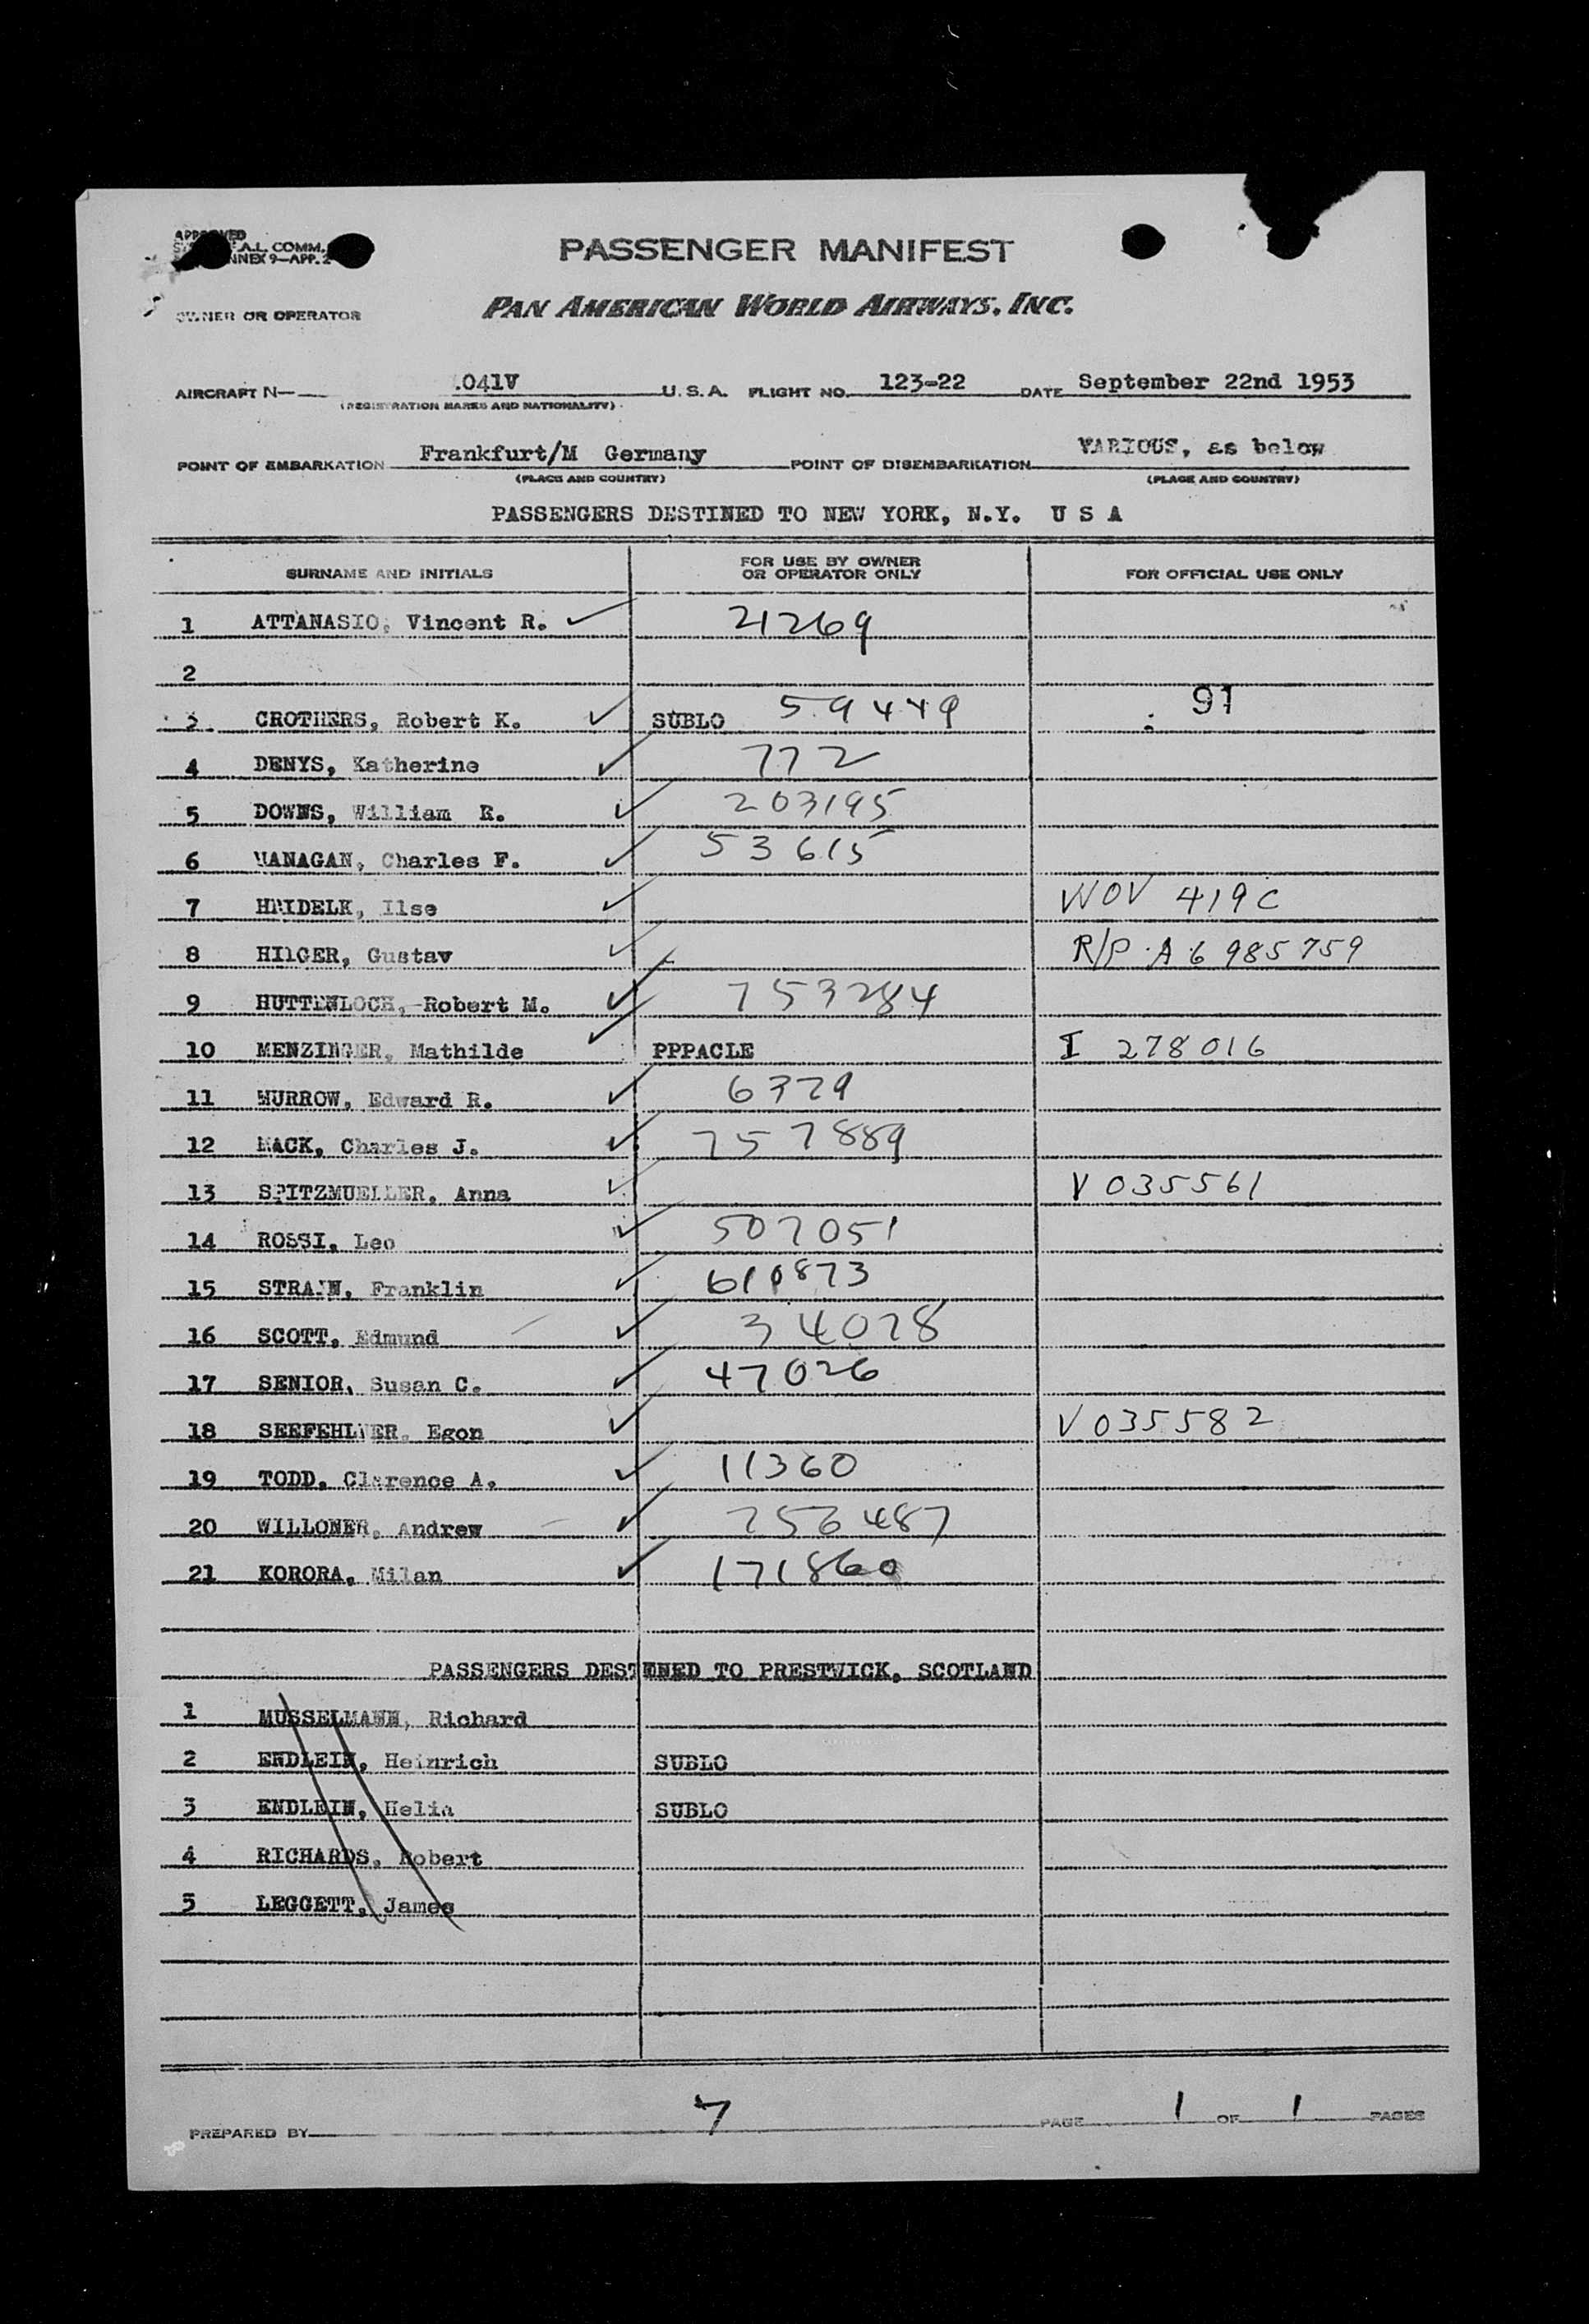 PASSENGER MANIFEST
A.L. COMM.
ANNEX 9—APP. 2
OWNER OR OPERATOR PAN AMERICAN WORLD AIRWAYS, INC.
AIRCRAFT N— 041V U.S.A. FLIGHT NO. 123-22 DATE September 22nd 1953
(REGISTRATION MARKS AND NATIONALITY)
POINT OF EMBARKATION Frankfurt/M Germany POINT OF DISEMBARKATION VARIOUS, as below
(PLACE AND COUNTRY) (PLACE AND COUNTRY)
PASSENGERS DESTINED TO NEW YORK, N.Y. U S A
SURNAME AND INITIALS FOR USE BY OWNER OR OPERATOR ONLY FOR OFFICIAL USE ONLY
1 ATTANASIO, Vincent R. 21269
2
3 CROTHERS, Robert K. SUBLO 59449 91
4 DENYS, Katherine 772
5 DOWNS, William R. 203195
6 MANAGAN, Charles F. 53615
7 HAIDELK, Ilse WOV 419C
8 HILGER, Gustav R/P A6 985759
9 HUTTENLOCH, Robert M. 753284
10 MENZINGER, Mathilde PPPACLE I 278016
11 MURROW, Edward R. 6329
12 MACK, Charles J. 757889
13 SPITZMUELLER, Anna V 035561
14 ROSSI, Leo 507051
15 STRAIN, Franklin 610873
16 SCOTT, Edmund 34028
17 SENIOR, Susan C. 47026
18 SEEFEHLNER, Egon V 035582
19 TODD, Clarence A. 11360
20 WILLONER, Andrew 756487
21 KORORA, Milan 171860
PASSENGERS DESTINED TO PRESTWICK, SCOTLAND
1 MUSSELMANN, Richard
2 ENDLEIN, Heinrich SUBLO
3 ENDLEIN, Helia SUBLO
4 RICHARDS, Robert
5 LEGGETT, James
PREPARED BY 7 PAGE 1 OF 1 PAGES